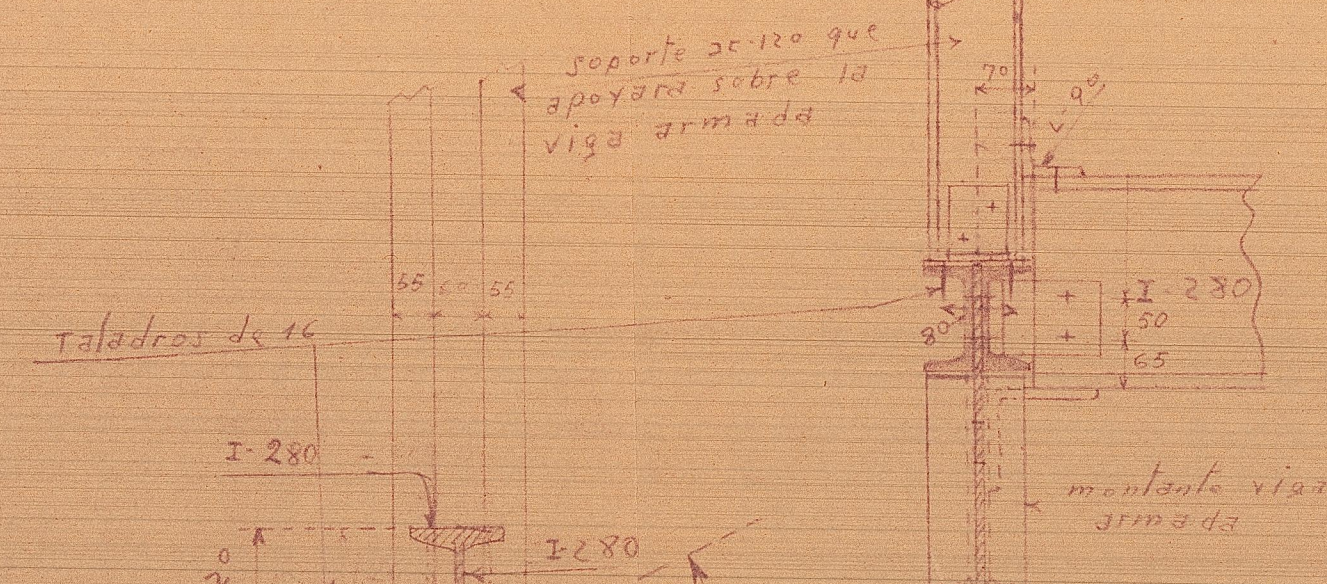 soporte 2c-120 que
apoyara sobre la
viga armada
70
90
55 60 55
Taladros de 16
80
I-280
50
65
I-280
I-280
montante viga
armada